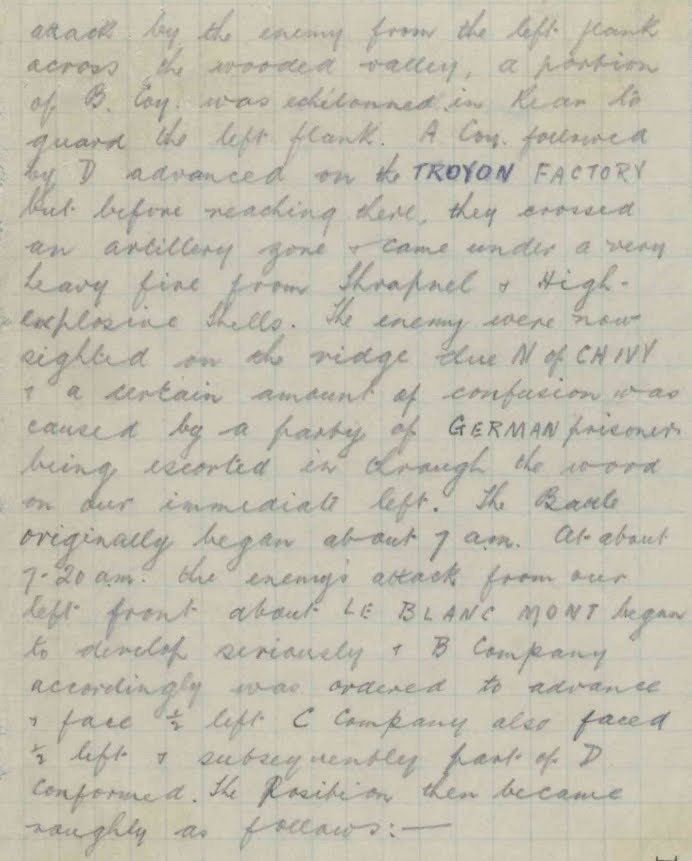 attack by the enemy from the left flank
across the wooded valley, a portion
of B. Coy. was echelonned in Rear to
guard the left flank. A Coy. followed
by D advanced on the TROYON FACTORY
but before reaching there, they crossed
an artillery zone & came under a very
heavy fire from Shrapnel & High-
explosive Shells. The enemy were now
sighted on the ridge due N of CHIVY
& a certain amount of confusion was
caused by a party of GERMAN prisoners
being escorted in through the wood
on our immediate left. The Battle
originally began about 7 am. At about
7-20 am. the enemy's attack from our
left front about LE BLANC MONT began
to develop seriously & B Company
accordingly was ordered to advance
& face ½ left. C Company also faced
½ left & subsequently part of D
conformed. The Position then became
roughly as follows:—